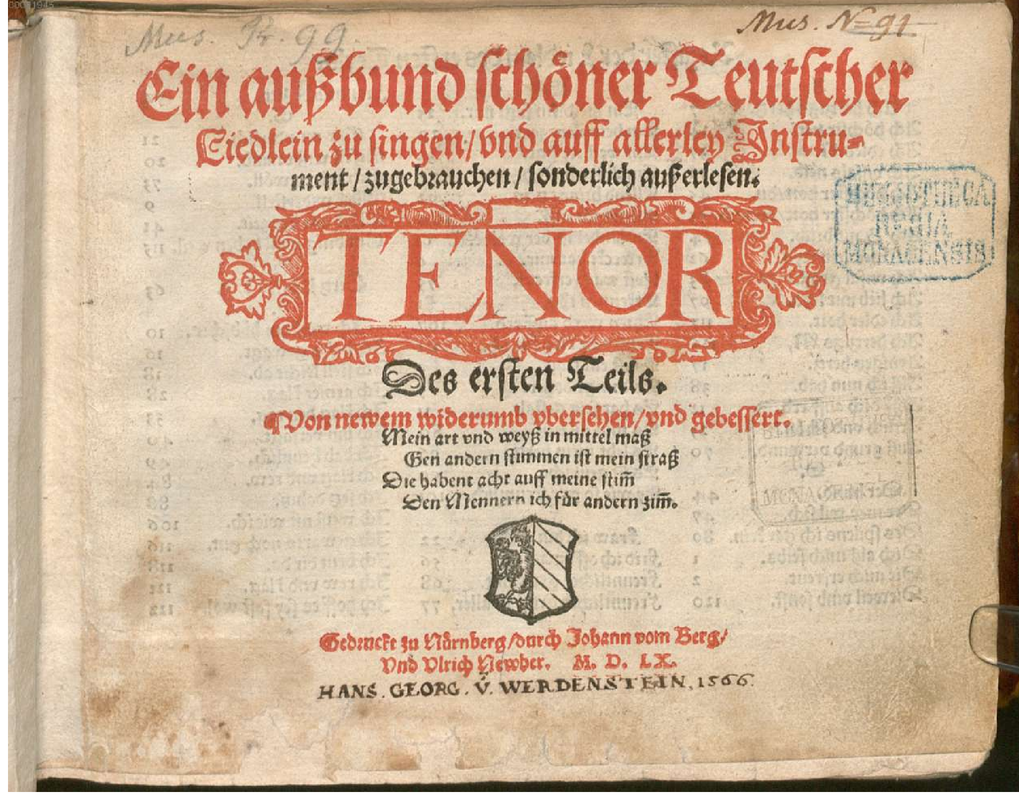 Mus. Pr. 99.
Mus. N= 91
Ein außbund schöner Teutscher
Liedlein zu singen/ vnd auff allerley Instru-
ment / zugebrauchen / sonderlich außerlesen.
BIBLIOTHECA
REGIA
MONACENSIS
TENOR
Des ersten Teils.
Von newem widerumb vbersehen/ vnd gebessert.
Mein art vnd weyß in mittel maß
Gen andern stimmen ist mein straß
Die habent acht auff meine stim̄
Den Mennern ich für andern zim̄.
Gedruckt zu Nürnberg / durch Johann vom Berg /
Vnd Vlrich Newber. M. D. LX.
HANS. GEORG. V̊. WERDENSTEIN, 1566